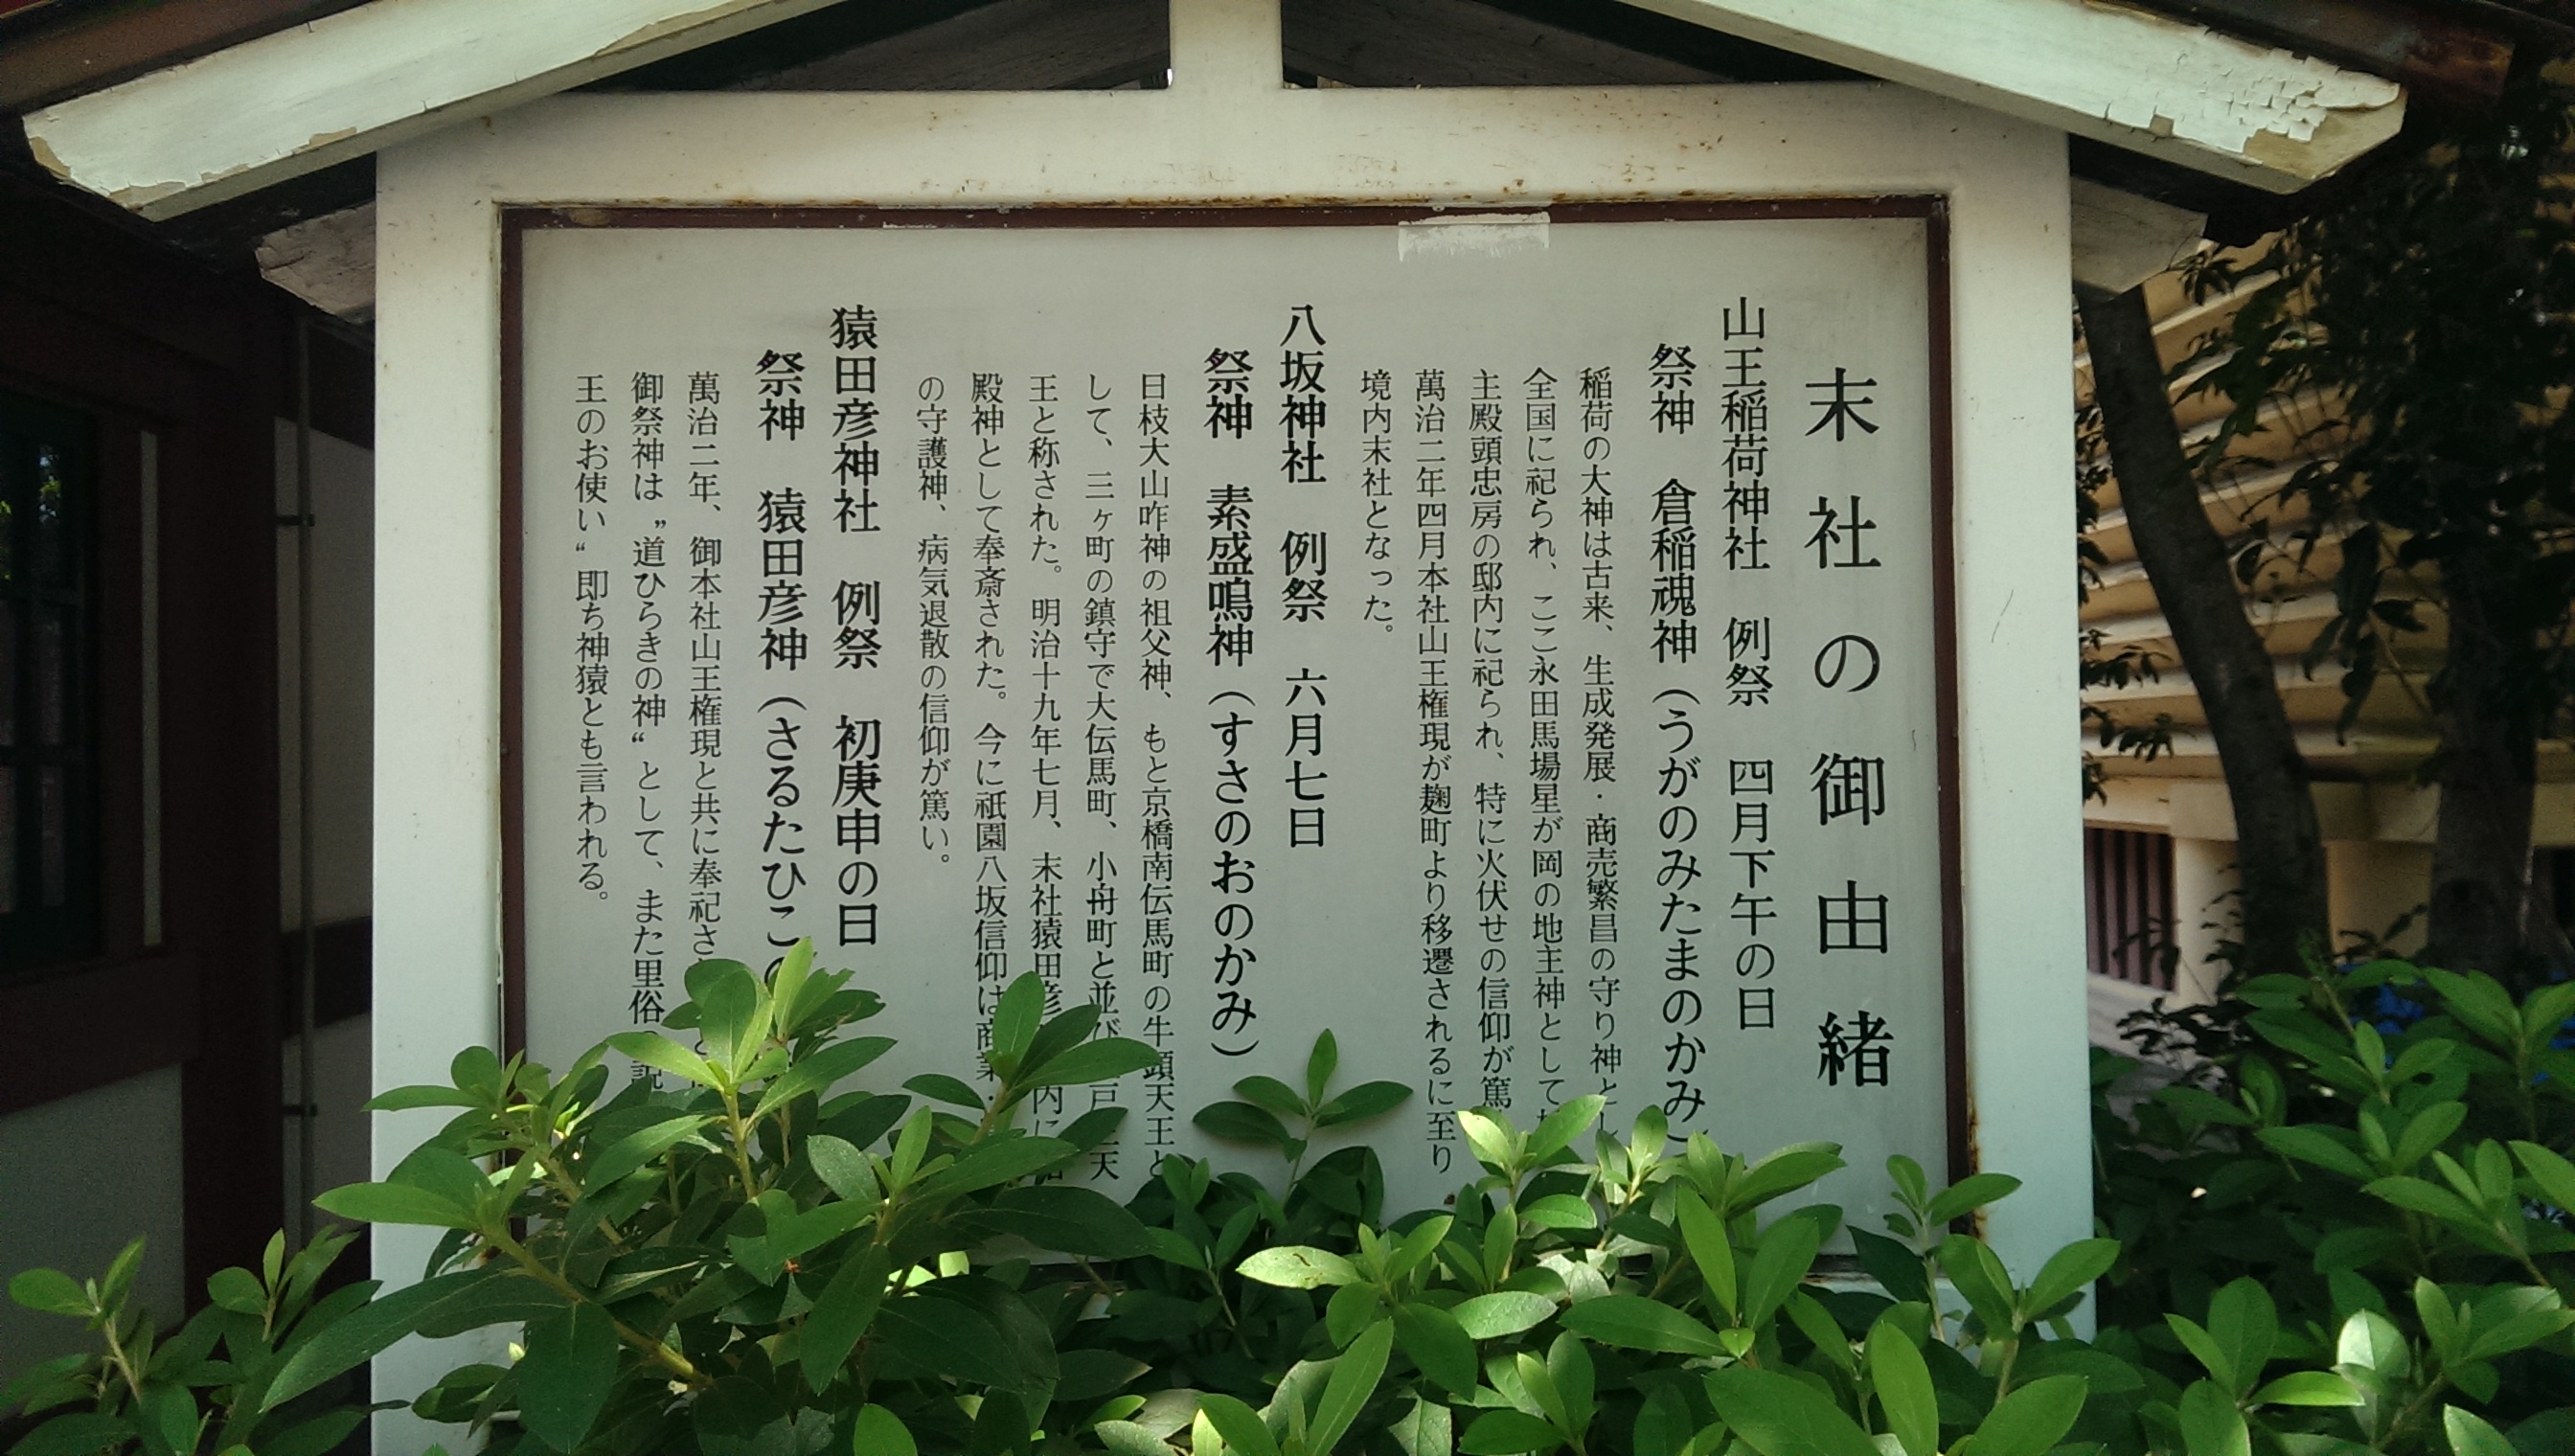 末社の御由緒
山王稲荷神社 例祭 四月下午の日
祭神 倉稲魂神（うがのみたまのかみ）
稲荷の大神は古来、生成発展・商売繁昌の守り神とし
全国に祀られ、ここ永田馬場星が岡の地主神として
主殿頭忠房の邸内に祀られ、特に火伏せの信仰が篤
萬治二年四月本社山王権現が麹町より移遷されるに至り
境内末社となった。
八坂神社 例祭 六月七日
祭神 素盛鳴神（すさのおのかみ）
日枝大山咋神の祖父神、もと京橋南伝馬町の牛頭天王と
して、三ヶ町の鎮守で大伝馬町、小舟町と並び 天
王と称された。明治十九年七月、末社猿田彦 内に
殿神として奉斎された。今に祇園八坂信仰は商業・
の守護神、病気退散の信仰が篤い。
猿田彦神社 例祭 初庚申の日
祭神 猿田彦神（さるたひこの
萬治二年、御本社山王権現と共に奉祀さ
御祭神は〟道ひらきの神〝として、また里俗の説
王のお使い〝即ち神猿とも言われる。